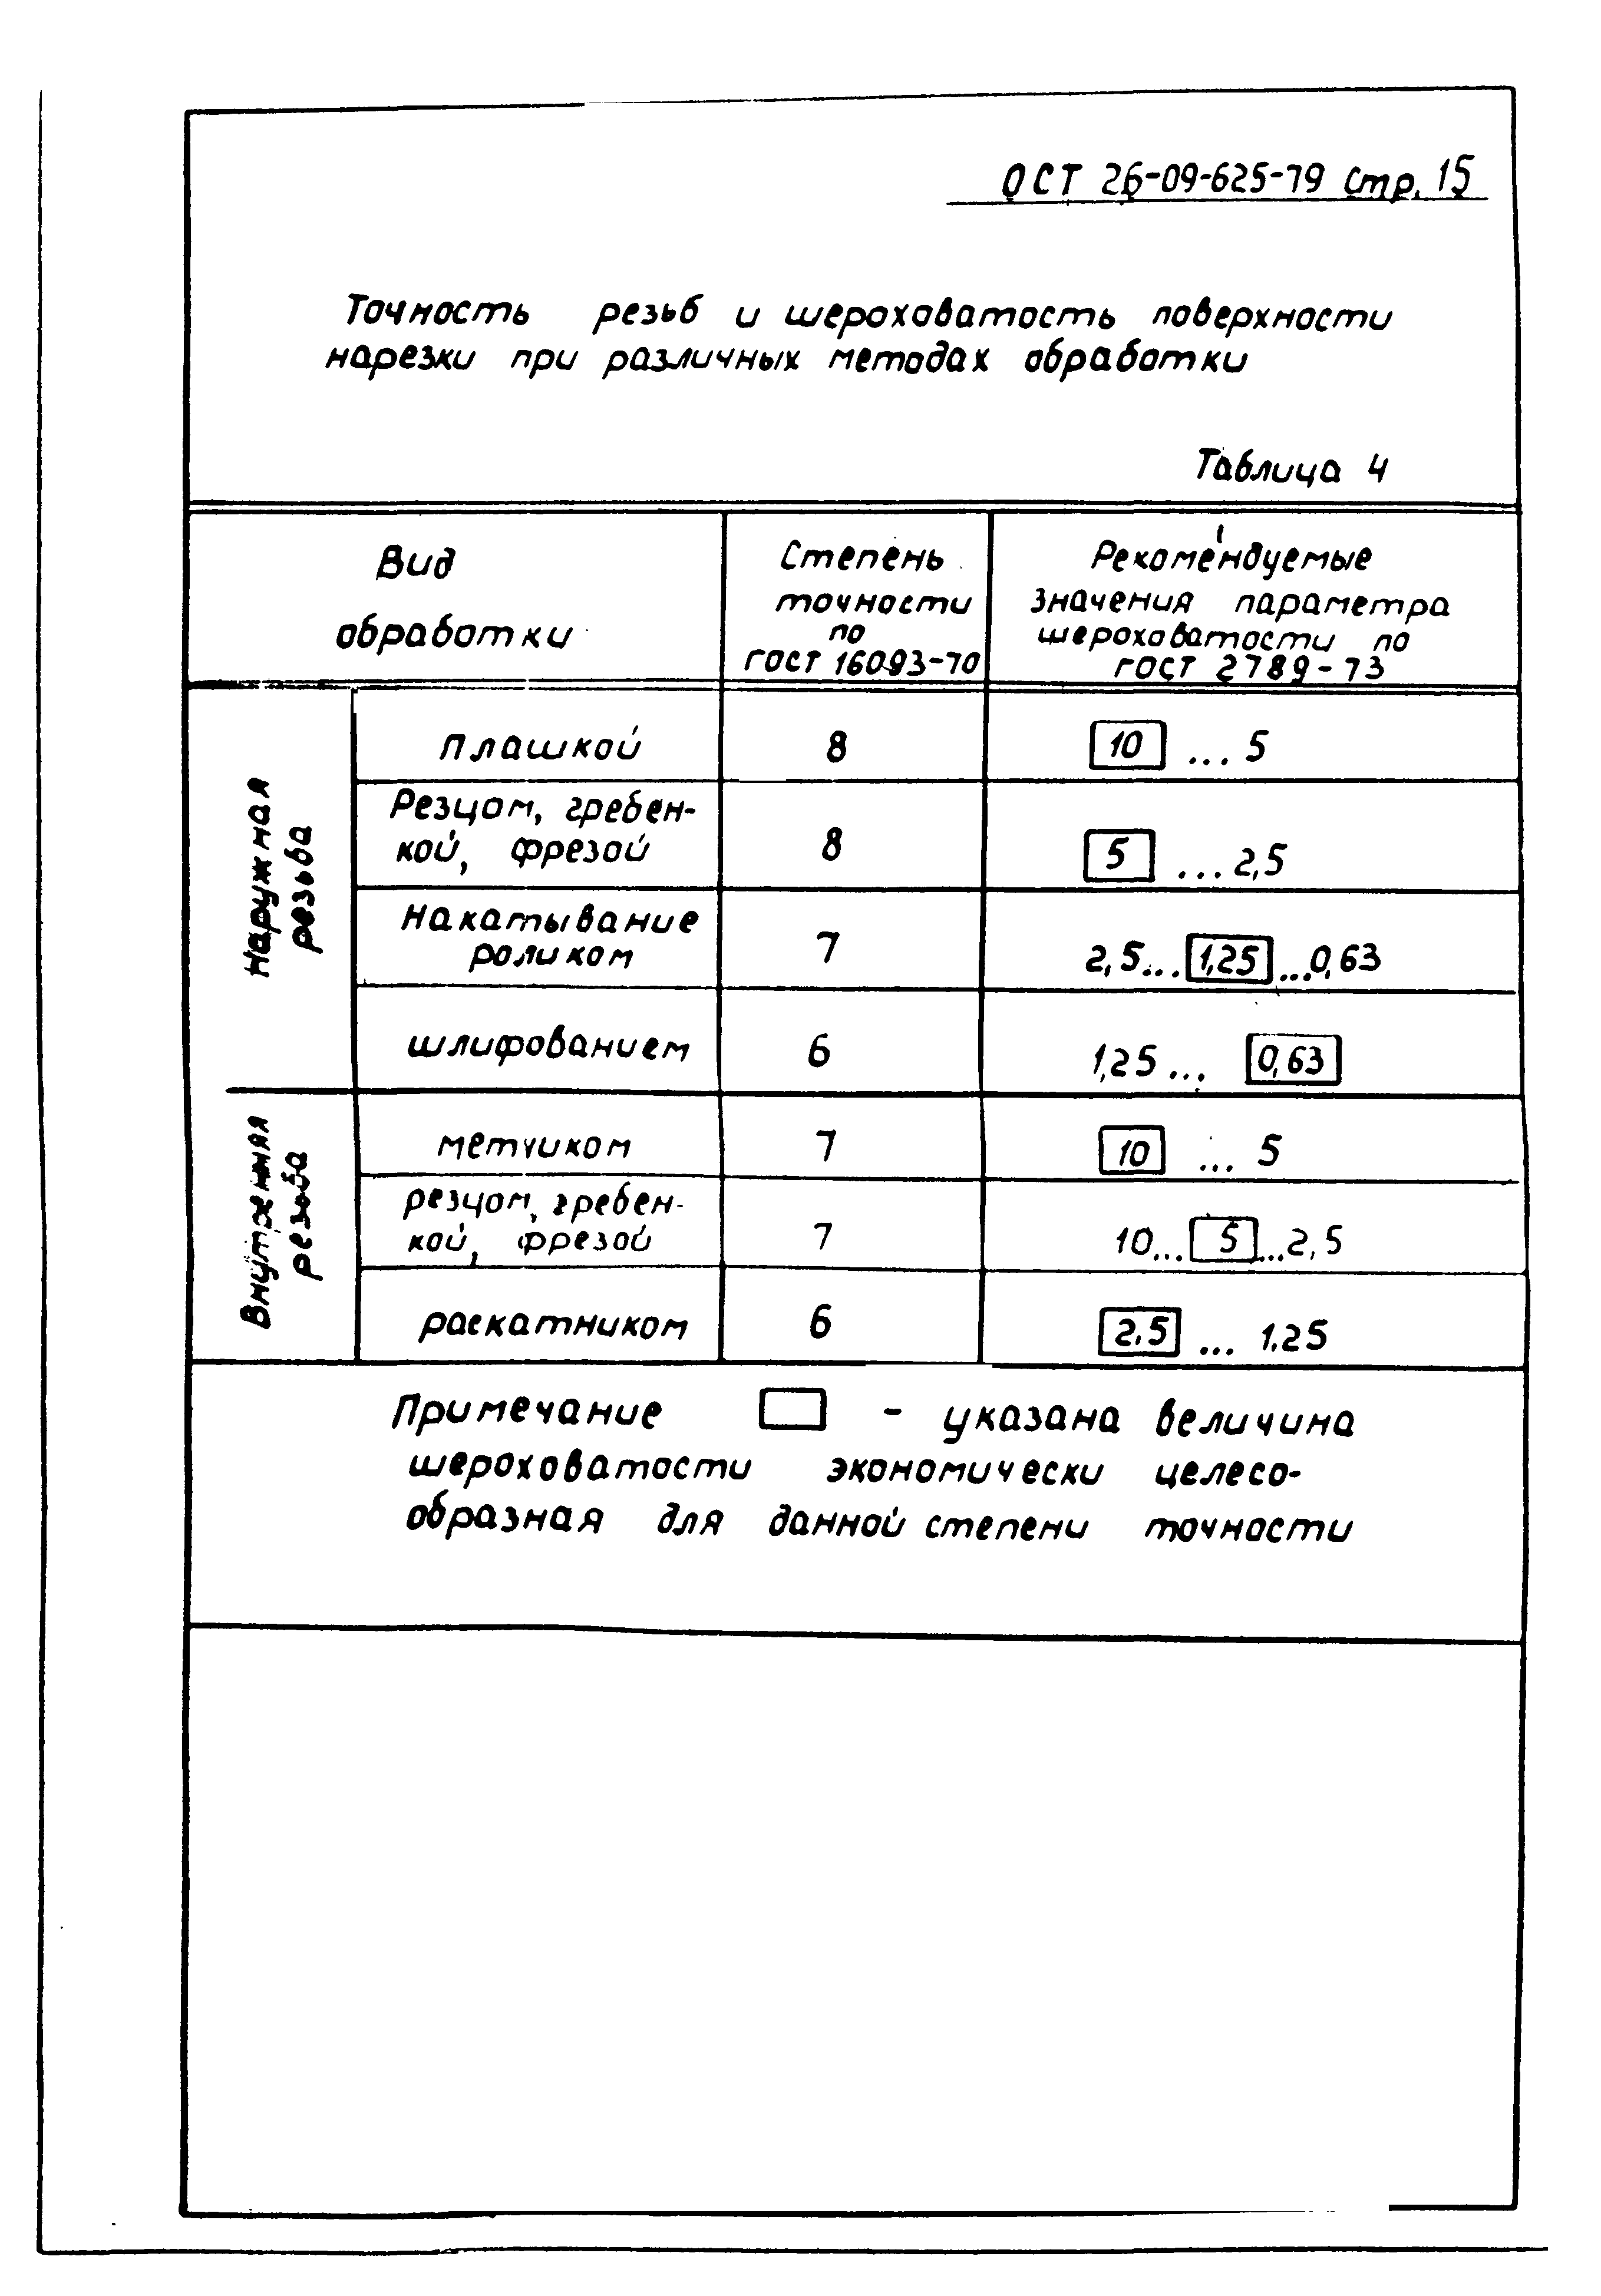 ОСТ 26-09-625-79 стр. 15
Точность резьб и шероховатость поверхности
нарезки при различных методах обработки
Таблица 4
Вид
обработки
Степень
точности
по
ГОСТ 16093-70
Рекомендуемые
значения параметра
шероховатости по
ГОСТ 2789-73
Наружная
резьба
Плашкой
8
10 ... 5
Резцом, гребен-
кой, фрезой
8
5 ... 2,5
Накатывание
роликом
7
2,5...1,25...0,63
шлифованием
6
1,25... 0,63
Внутренняя
резьба
метчиком
7
10 ... 5
резцом, гребен-
кой, фрезой
7
10...5...2,5
раскатником
6
2.5 ... 1.25
Примечание - указана величина
шероховатости экономически целесо-
образная для данной степени точности